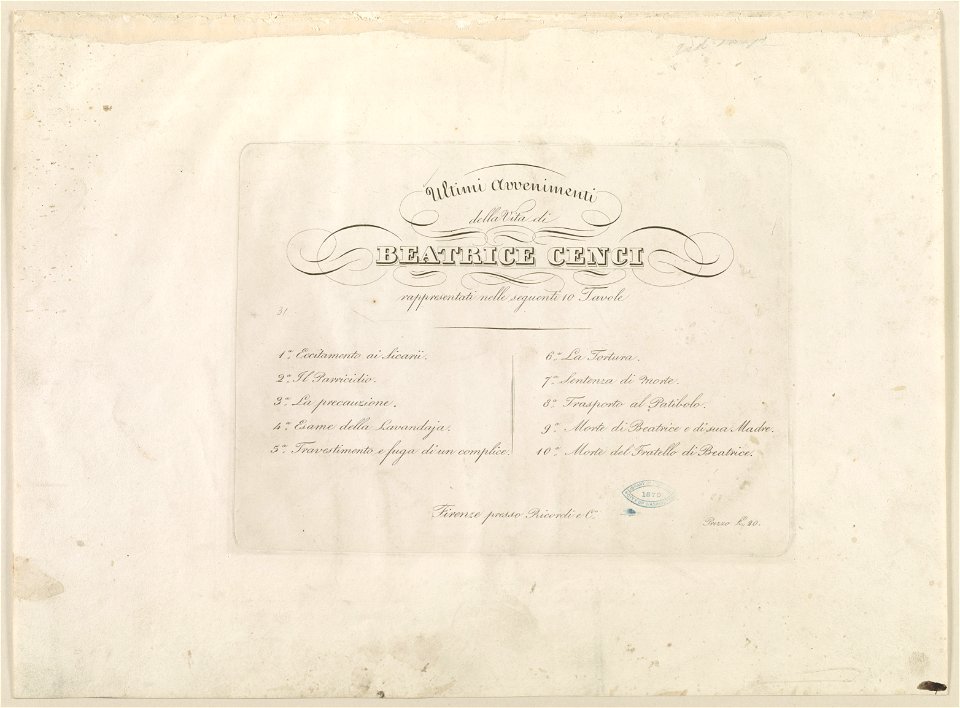 Ultimi Avvenimenti
della Vita di
BEATRICE CENCI
rappresentati nelle seguenti 10 Tavole
31
1.a Eccitamento ai Sicarii.
2.a Il Parricidio.
3.a La precauzione.
4.a Esame della Lavandaja.
5.a Travestimento e fuga di un complice.
6.a La Tortura.
7.a Sentenza di Morte.
8.a Trasporto al Patibolo.
9.a Morte di Beatrice e di sua Madre.
10.a Morte del Fratello di Beatrice.
1870
Firenze presso Ricordi e C.o
Prezzo L. 20.